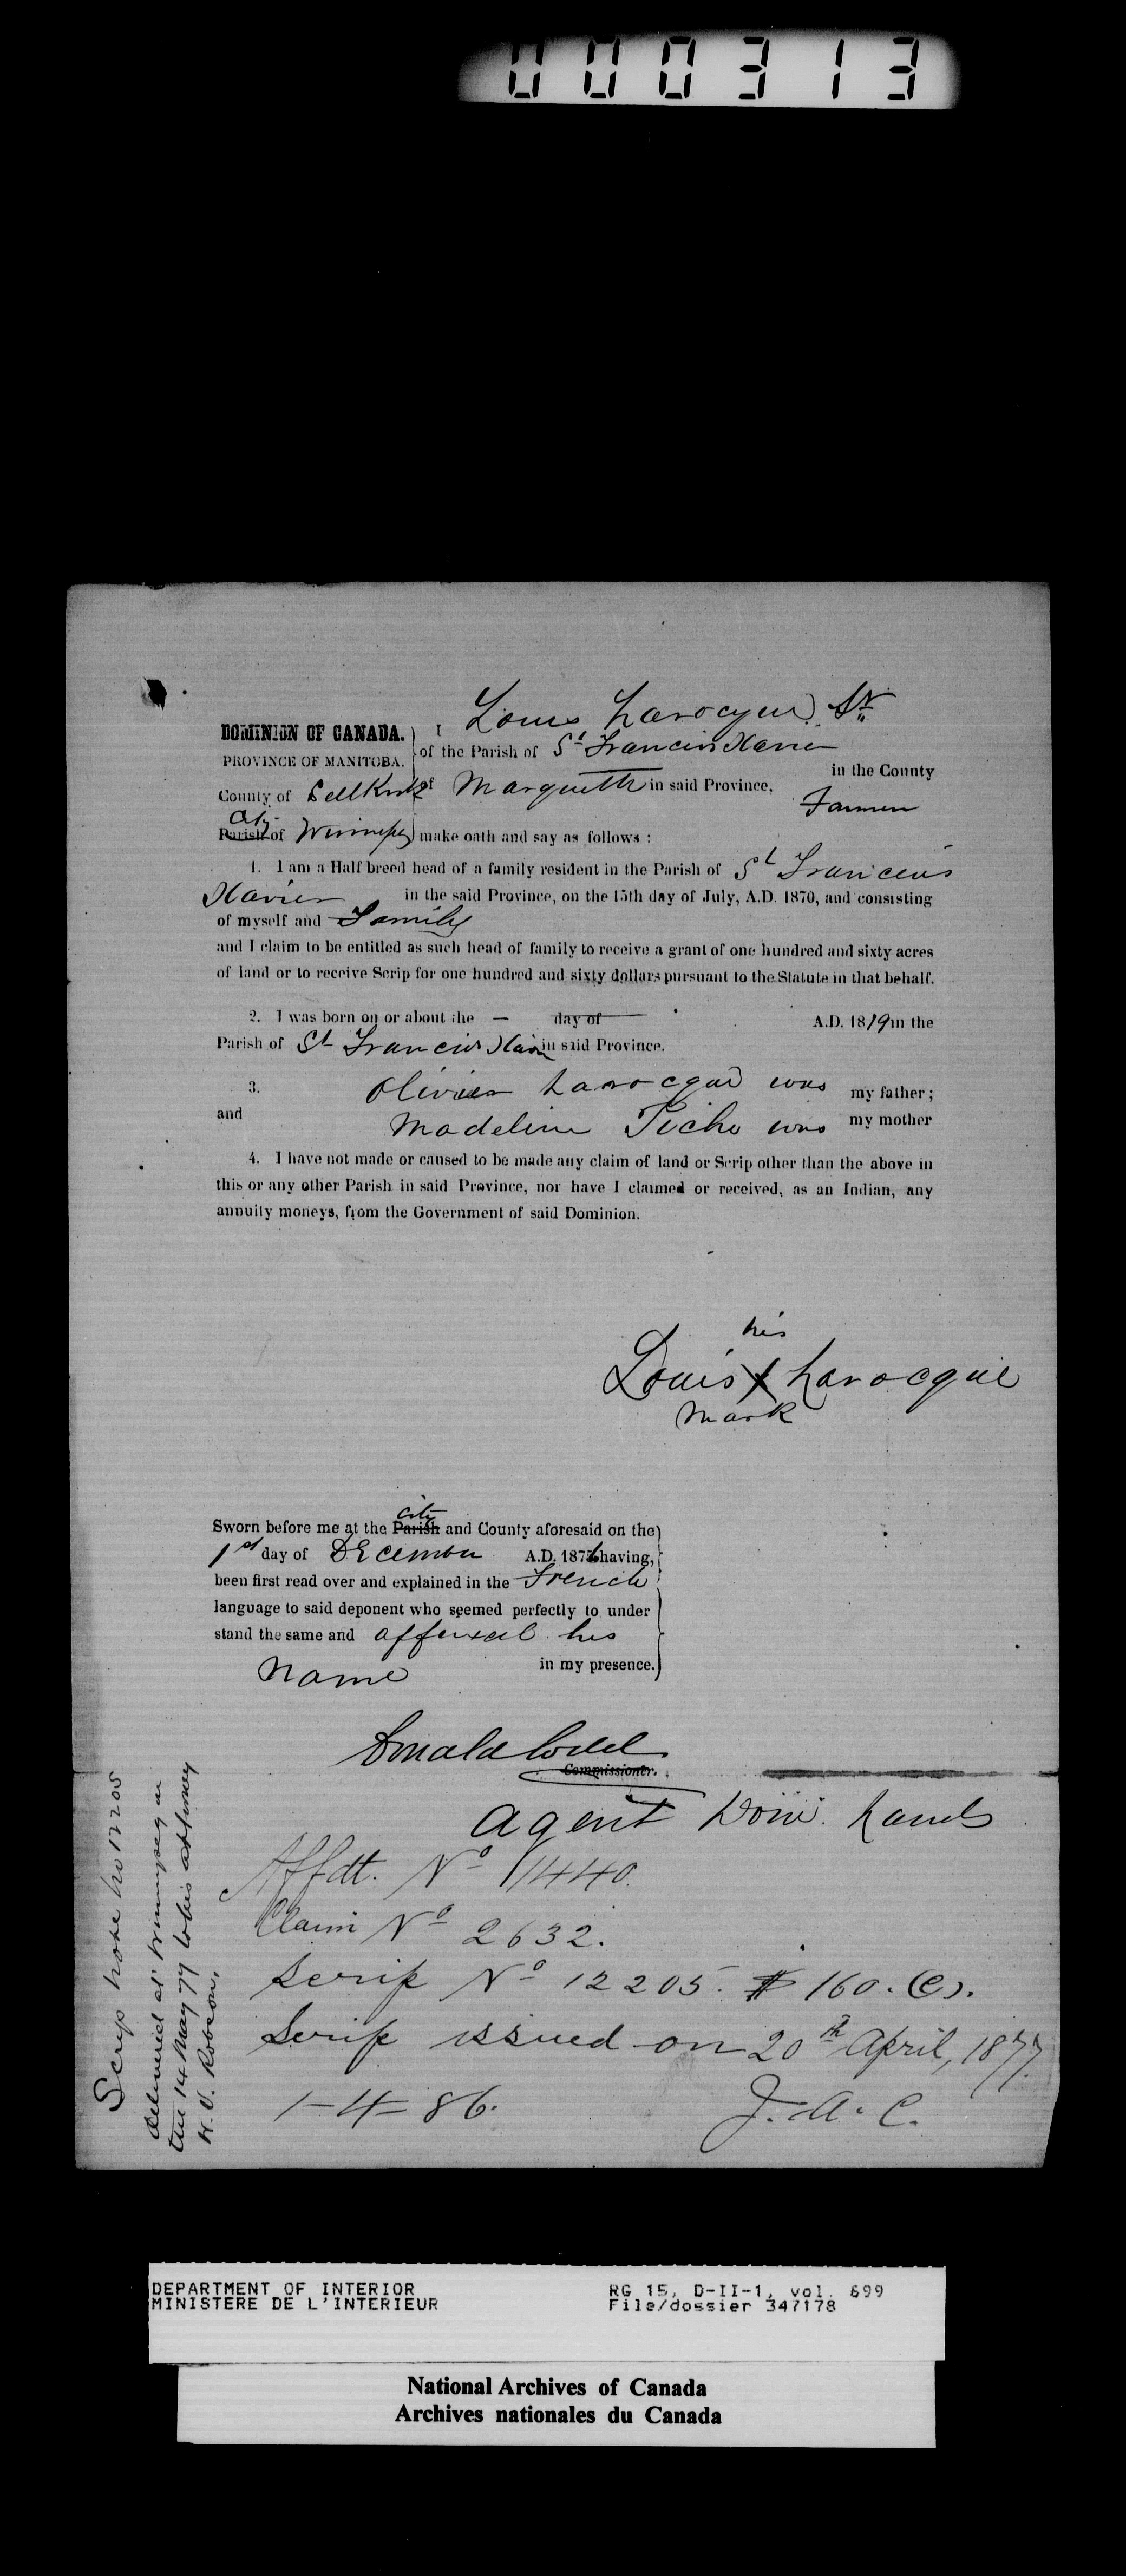 000313
Louis Larocque Sr
DOMINION OF CANADA. I
PROVINCE OF MANITOBA. of the Parish of St Francis Xavier in the County
County of Sellkirk of Marquette in said Province, Farmer
City
Parish of Winnipeg make oath and say as follows :
1. I am a Half breed head of a family resident in the Parish of St Francois
Xavier in the said Province, on the 15th day of July, A.D. 1870, and consisting
of myself and Family
and I claim to be entitled as such head of family to receive a grant of one hundred and sixty acres
of land or to receive Scrip for one hundred and sixty dollars pursuant to the Statute in that behalf.
2. I was born on or about the — day of A.D. 1819 in the
Parish of St Francis Xavier in said Province.
3. Olivier Larocque was my father;
and Madeline Piche was my mother
4. I have not made or caused to be made any claim of land or Scrip other than the above in
this or any other Parish in said Province, nor have I claimed or received, as an Indian, any
annuity moneys, from the Government of said Dominion.
his
Louis X Larocque
mark
City
Sworn before me at the Parish and County aforesaid on the
1st day of December A.D. 1876 having,
been first read over and explained in the French
language to said deponent who seemed perfectly to under
stand the same and affixed his
name in my presence.
Donald Codd
Commissioner.
Agent Dom. Lands
Affdt. No 1440.
Claim No 2632.
Scrip No 12205. $160.(C).
Scrip issued on 20th April, 1877.
1-4-86. J.A.C.
Scrip note No 12205
delivered at Winnipeg on
the 14 May 77 to his attorney
DEPARTMENT OF INTERIOR RG 15, D-II-1, vol. 699
MINISTERE DE L'INTERIEUR File/dossier 347178
National Archives of Canada
Archives nationales du Canada